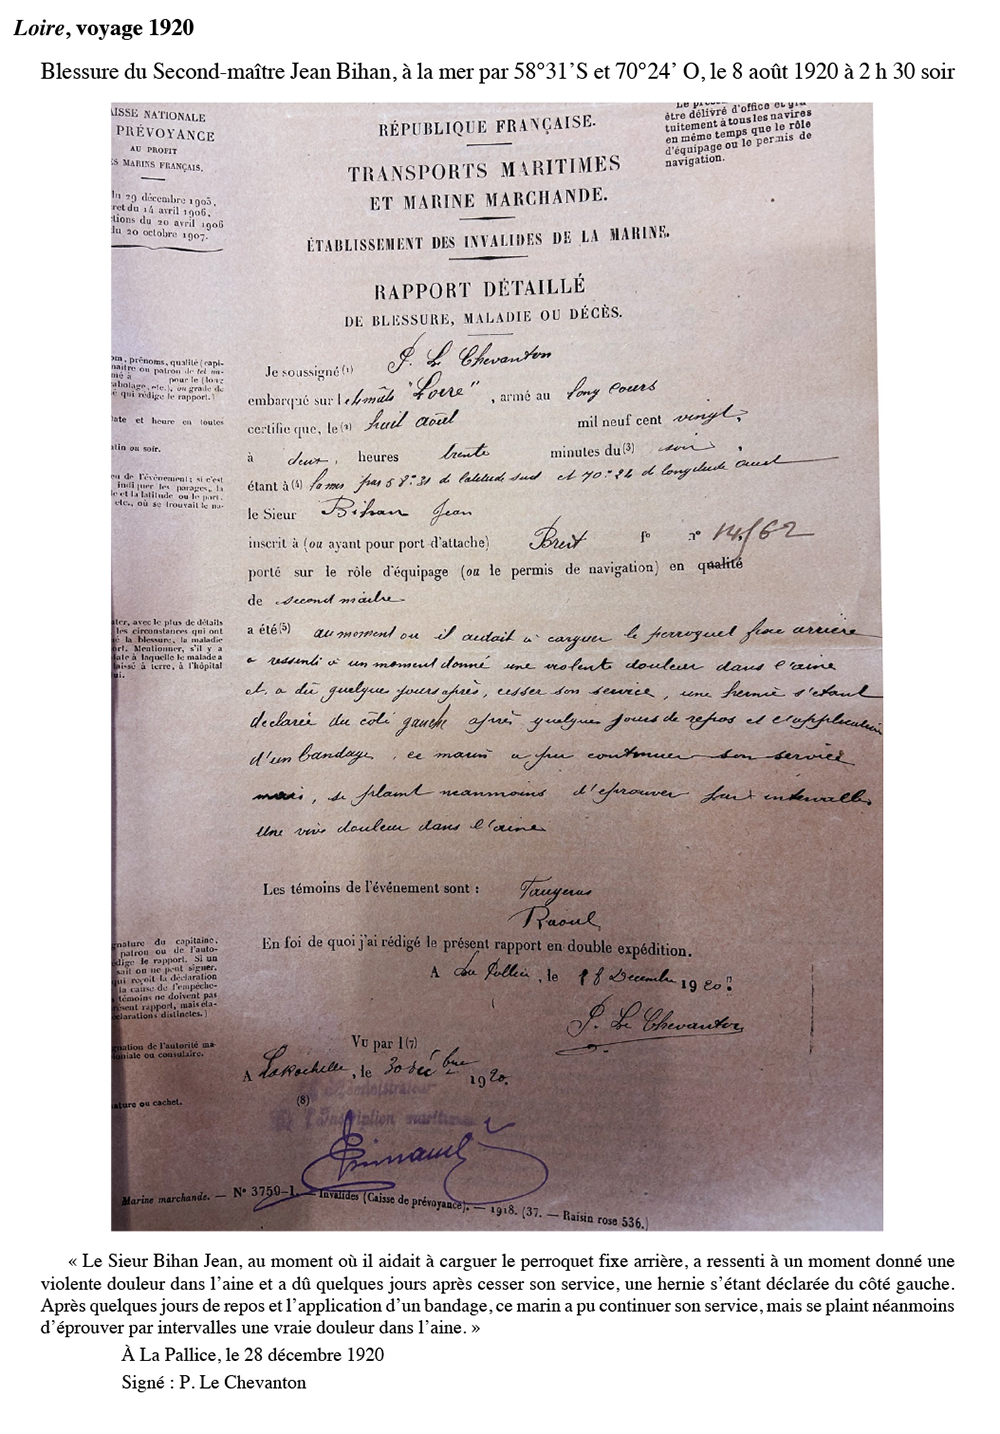 Loire, voyage 1920
Blessure du Second-maître Jean Bihan, à la mer par 58°31’S et 70°24’ O, le 8 août 1920 à 2 h 30 soir
AISSE NATIONALE
PRÉVOYANCE
AU PROFIT
S MARINS FRANÇAIS.
lu 29 décembre 1905,
ret du 14 avril 1906,
tions du 20 avril 1906
du 20 octobre 1907.
être délivré d'office et gra
tuitement à tous les navires
en même temps que le rôle
d'équipage ou le permis de
navigation.
RÉPUBLIQUE FRANÇAISE.
TRANSPORTS MARITIMES
ET MARINE MARCHANDE.
ÉTABLISSEMENT DES INVALIDES DE LA MARINE.
RAPPORT DÉTAILLÉ
DE BLESSURE, MALADIE OU DÉCÈS.
om, prénoms, qualité (capi-
naitre ou patron de tel na-
mé à pour le (long
abotage, etc.), ou grade de
qui rédige le rapport.)
Date et heure en toutes
atin ou soir.
eu de l'événement; si c'est
indiquer les parages, la
e et la latitude ou le port,
etc., où se trouvait le na-
Je soussigné (1) P. Le Chevanton
embarqué sur le 4 mâts "Loire", armé au long cours
certifie que, le (2) huit août mil neuf cent vingt,
à deux, heures trente minutes du (3) soir,
étant à (4) la mer par 58°31 de latitude sud et 70°24 de longitude ouest
le Sieur Bihan Jean
inscrit à (ou ayant pour port d'attache) Brest f° n° 14/62
porté sur le rôle d'équipage (ou le permis de navigation) en qualité
de second maître
ter, avec le plus de détails
les circonstances qui ont
é la blessure, la maladie
ort. Mentionner, s'il y a
date à laquelle le malade a
aissé à terre, à l'hôpital
ui.
a été (5) au moment ou il aidait à carguer le perroquet fixe arrière
a ressenti à un moment donné une violente douleur dans l'aine
et a dû quelques jours après, cesser son service, une hernie s'étant
déclarée du côté gauche après quelques jours de repos et l'application
d'un bandage, ce marin a pu continuer son service
mais, se plaint neanmoins d'éprouver par intervalles
une vive douleur dans l'aine
Les témoins de l'événement sont :
Raoul
En foi de quoi j'ai rédigé le présent rapport en double expédition.
gnature du capitaine,
patron ou de l'auto-
dige le rapport. Si un
sait ou ne peut signer,
qui reçoit la déclaration
la cause de l'empêche-
s témoins ne doivent pas
résent rapport, mais éta-
clarations distinctes.)
A La Pallice, le 28 Decembre 1920
P. Le Chevanton
gnation de l'autorité ma-
oniale ou consulaire.
Vu par l (7)
A La Rochelle, le 30 décbre 1920.
ature ou cachet.
(8)
l'Administrateur
l'Inscription maritime
Marine marchande. — N° 3759-1. — Invalides (Caisse de prévoyance). — 1918. (37. — Raisin rose 536.)
« Le Sieur Bihan Jean, au moment où il aidait à carguer le perroquet fixe arrière, a ressenti à un moment donné une
violente douleur dans l’aine et a dû quelques jours après cesser son service, une hernie s’étant déclarée du côté gauche.
Après quelques jours de repos et l’application d’un bandage, ce marin a pu continuer son service, mais se plaint néanmoins
d’éprouver par intervalles une vraie douleur dans l’aine. »
À La Pallice, le 28 décembre 1920
Signé : P. Le Chevanton